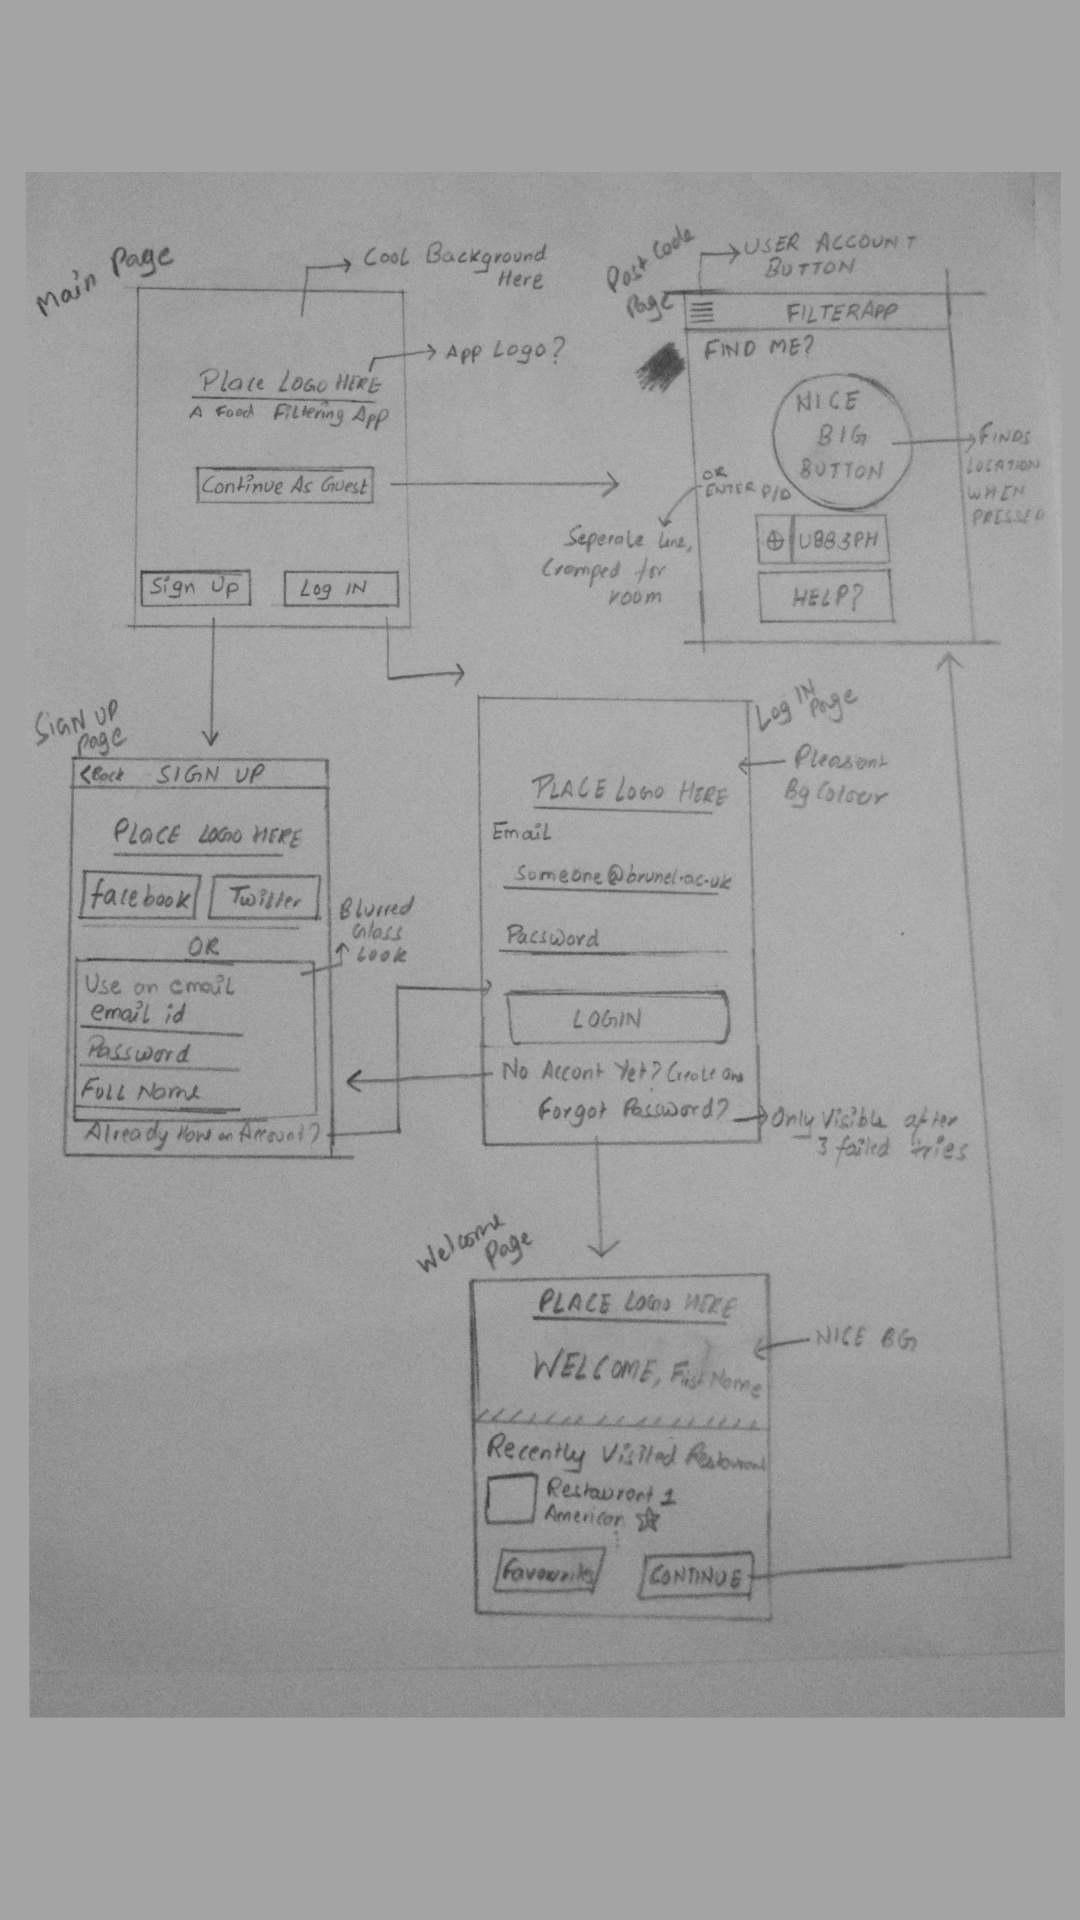 Main Page
Cool Background
Here
App Logo?
Place Logo HERE
A Food Filtering App
Continue As Guest
Sign Up
Log IN
Post Code
Page
USER ACCOUNT
BUTTON
FILTERAPP
FIND ME?
NICE
BIG
BUTTON
FINDS
LOCATION
WHEN
PRESSED
OR
ENTER P/D
Seperate line,
Cramped for
room
UB83PH
HELP?
SIGN UP
Page
<Back SIGN UP
PLACE LOGO HERE
facebook
Twitter
OR
Blurred
Glass
Look
Use an email
email id
Password
Full Name
Already Have an Account?
Log IN
Page
Pleasant
Bg Colour
PLACE LOGO HERE
Email
Someone@brunel.ac.uk
Password
LOGIN
No Accont Yet? Create One
Forgot Password?
Only Visible after
3 failed tries
Welcome
Page
PLACE LOGO HERE
NICE BG
WELCOME, First Name
Recently Visited Restaurant
Restaurant 1
American
Favourites
CONTINUE